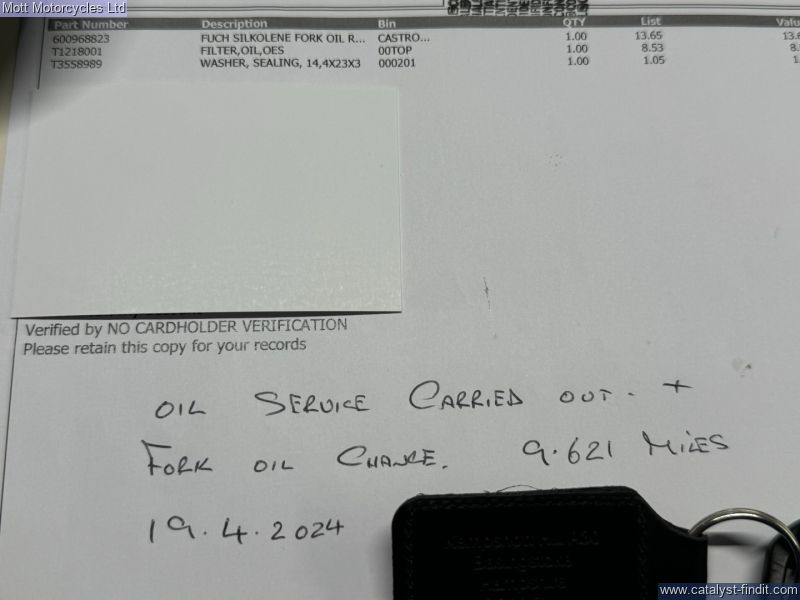 Mott Motorcycles Ltd
Part Number Description Bin QTY List
600968823 FUCH SILKOLENE FORK OIL R... CASTRO... 1.00 13.65
T1218001 FILTER,OIL,OES 00TOP 1.00 8.53
T3558989 WASHER, SEALING, 14,4X23X3 000201 1.00 1.05
Verified by NO CARDHOLDER VERIFICATION
Please retain this copy for your records
OIL SERVICE CARRIED OUT. +
FORK OIL CHANGE. 9.621 MILES
19.4.2024
Basingstoke
Hampshire
www.catalyst-findit.com